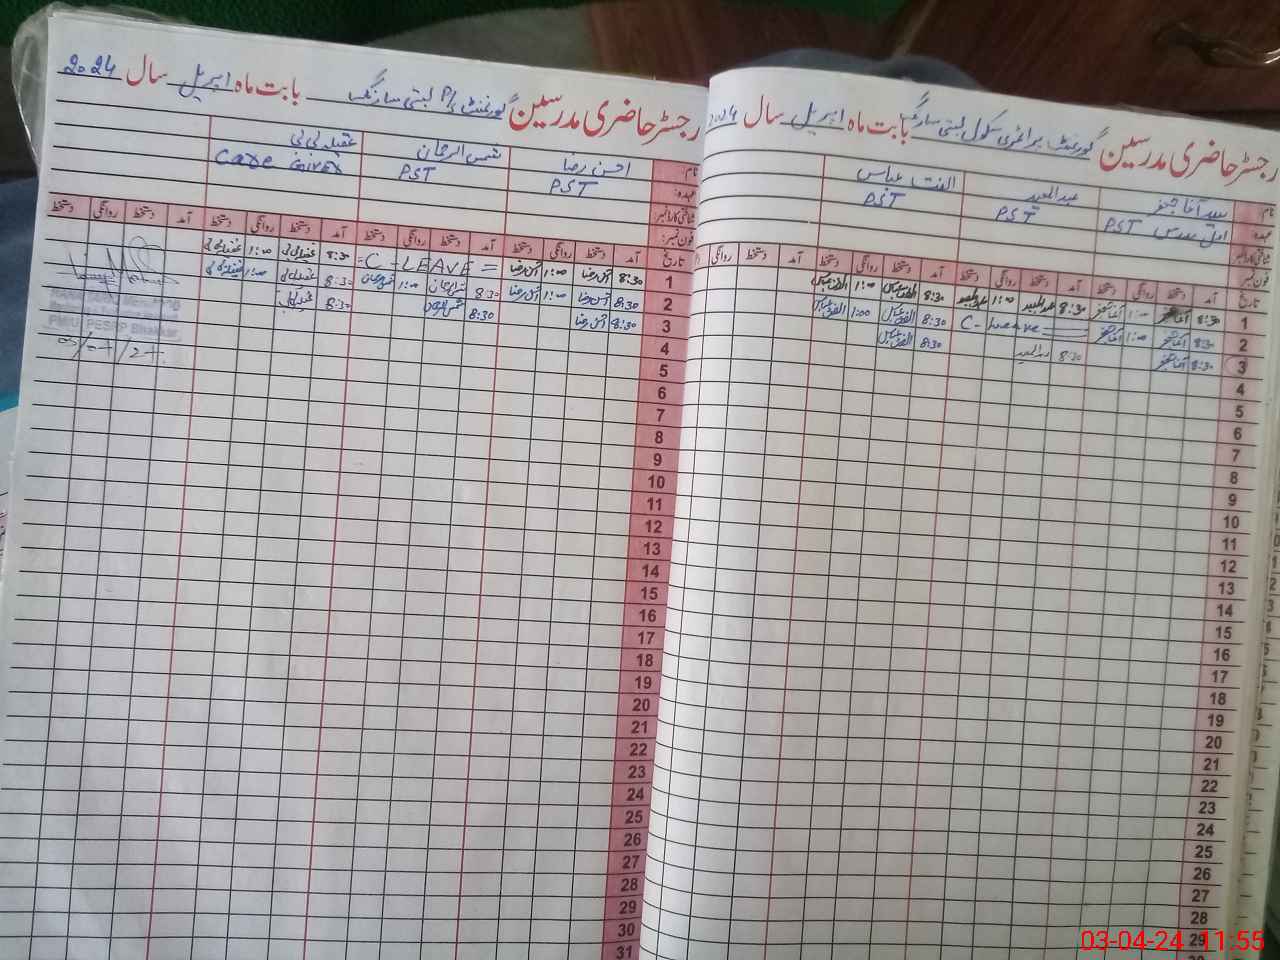 رجسٹر حاضری مدرسین گورنمنٹ پرائمری سکول بستی سارنگ بابت ماہ اپریل سال 2024
نام سید آغا جعفر عبدالمجید الفت عباس
عہدہ: اول مدرس PST PST PST
شناختی کارڈ نمبر
فون نمبر:
تاریخ آمد دستخط روانگی دستخط آمد دستخط روانگی دستخط آمد دستخط روانگی دستخط آمد دستخط
1 8:30 1:00 8:30 عبدالمجید 1:00 عبدالمجید 8:30 الفت عباس 1:00 الفت عباس
2 8:30 1:00 C-Leave 8:30 الفت عباس 1:00 الفت عباس
3 8:30 8:30 عبدالمجید 8:30 الفت عباس
4
5
6
7
8
9
10
11
12
13
14
15
16
17
18
19
20
21
22
23
24
25
26
27
28
29
رجسٹر حاضری مدرسین گورنمنٹ P/S بستی سارنگ بابت ماہ اپریل سال 2024
نام احسن رضا شمس الرحمان عقیلہ بی بی
عہدہ: PST PST Care Giver
شناختی کارڈ نمبر
فون نمبر:
تاریخ آمد دستخط روانگی دستخط آمد دستخط روانگی دستخط آمد دستخط روانگی دستخط آمد دستخط روانگی دستخط
1 8:30 احسن رضا 1:00 احسن رضا =C-LEAVE= 8:30 عقیلہ بی بی 1:00 عقیلہ بی بی
2 8:30 احسن رضا 1:00 احسن رضا 8:30 شمس الرحمان 1:00 شمس الرحمان 8:30 عقیلہ بی بی 1:00 عقیلہ بی بی
3 8:30 احسن رضا 8:30 شمس الرحمان 8:30 عقیلہ بی بی
4
5
6
7
8
9
10
11
12
13
14
15
16
17
18
19
20
21
22
23
24
25
26
27
28
29
30
31
PMIU, PESRP Bhakkar
03-04-24 11:55